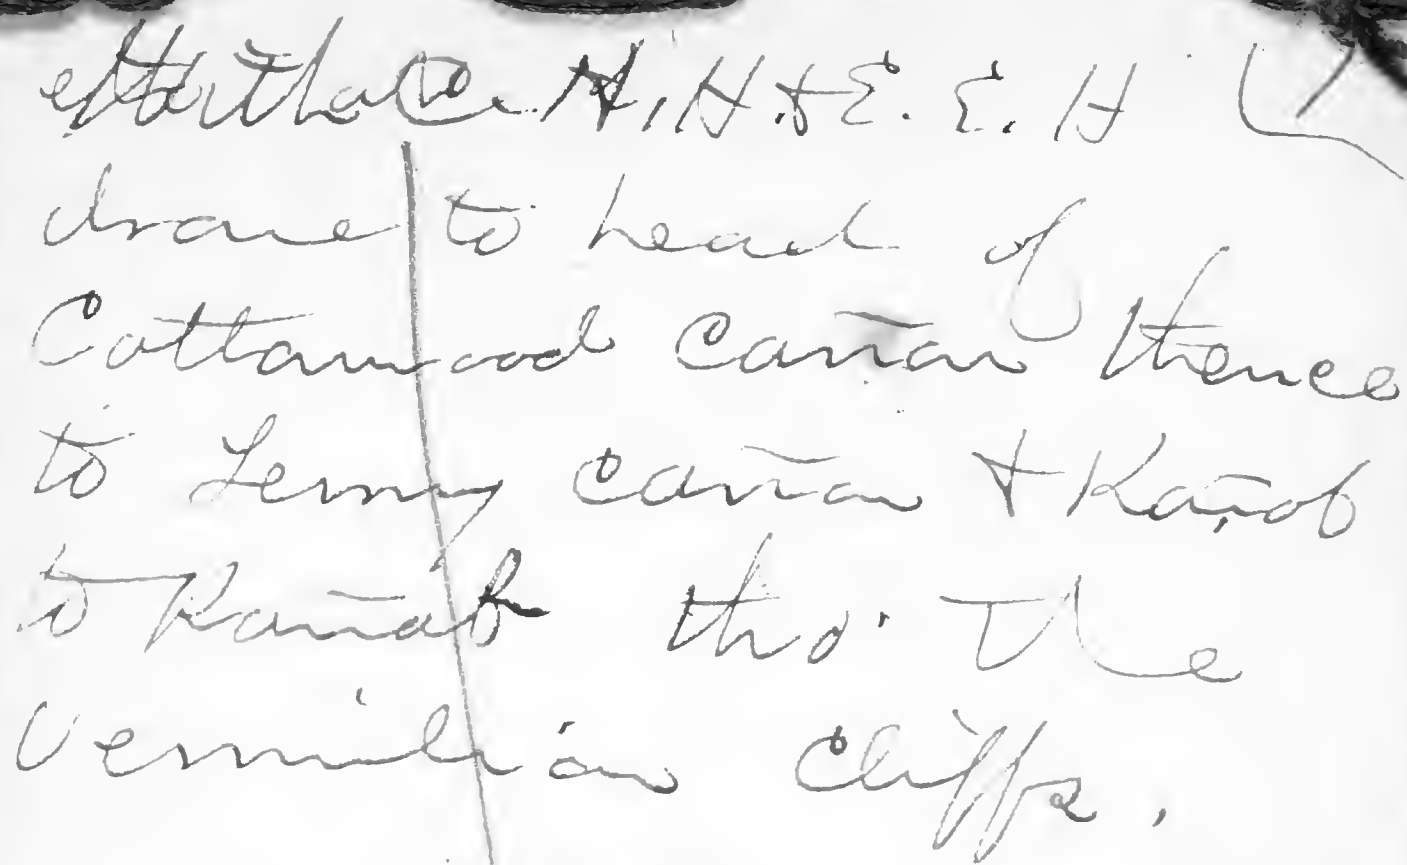 H. H. & E. E. H
drove to head of
Cottonwood Cañon thence
to cañon & Kañab
to Kañab thro' the
Vermilion Cliffs.